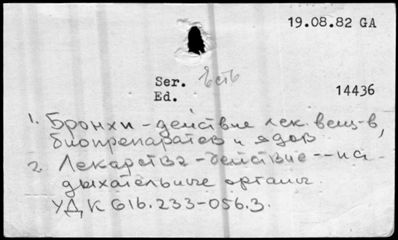 19.08.82 GA
Ser. Есть
Ed.
14436
1. Бронхи-действие лек. вещ-в,
биопрепаратов и ядов
2. Лекарства-действие--на
дыхательные органы.
УДК 616.233-056.3.